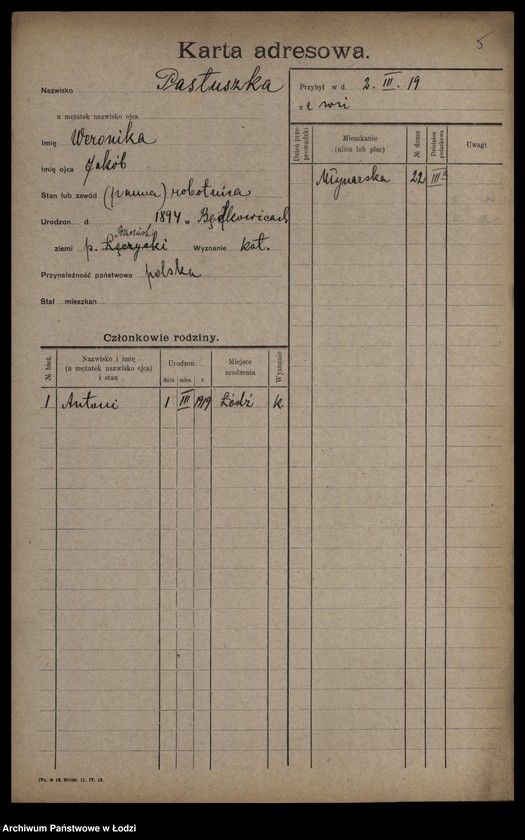 5
Karta adresowa.
Nazwisko Pastuszka
u mężatek nazwisko ojca
Imię Weronika
Imię ojca Jakób
Stan lub zawód (panna) robotnica
Urodzon d. 1894 w
ziemi p. Łęczycki Wyznanie kat.
Przynależność państwowa polska
Stał mieszkan
Przybył w d. 2. III. 19
z e wsi
Dzień przeprowadzki Mieszkanie (ulica lub plac) № domu Dzielnica podatkowa Uwagi
Młynarska 22 III
Członkowie rodziny.
№ bież. Nazwisko i imię (u mężatek nazwisko ojca) i stan Urodzon dnia mies. r. Miejsce urodzenia Wyznanie
1 Antoni 1 III 1919 Łódź k
Archiwum Państwowe w Łodzi